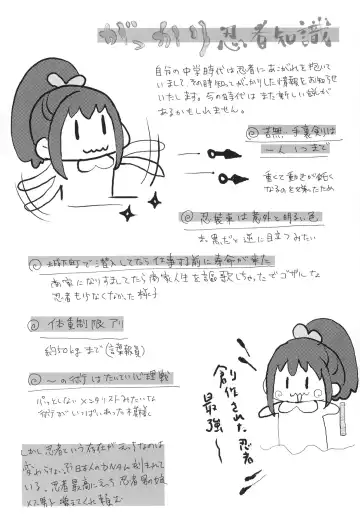 がっかり忍者知識
自分の中学時代は忍者にあこがれを抱いて
いまして その時知ってがっかりした情報をお知らせ
いたします。今の時代はまた新しい説が
あるかもしれません。
◎ 苦無、手裏剣は
一人1つまで
重くて動きが鈍く
なるのを嫌ったため
◎ 忍装束は意外と明るい色
真っ黒だと逆に目立つみたい
◎ 城下町で潜入してたら仕事する前に寿命が来た
商家になりすましてたら商家人生を謳歌しちゃったでゴザルな
忍者も少なくなかった様子
◎ 体重制限アリ
約50kgまで
◎ 〜の術はたいてい心理戦
パッとしないメンタリストみたいな
術がいっぱいあった
創作された忍者
最強〜
しかし忍者という存在がえっちなのは
変わらない
日本人の
刻まれて
いる。忍者最高にえっち 忍者男の娘